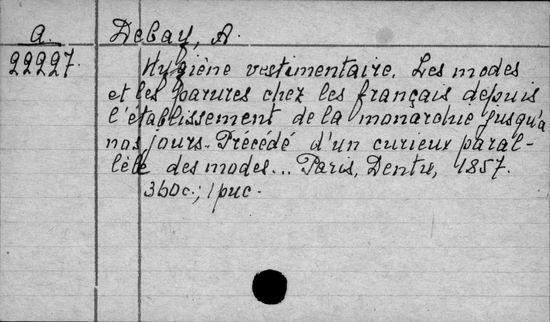 a.
22227.
Debay, A.
Hygiène vestimentaire. Les modes
et les parures chez les français depuis
l'établissement de la monarchie jusqu'a
nos jours. Précédé d'un curieux paral-
lèle des modes... Paris, Dentu, 1857.
360c.; 1рис.